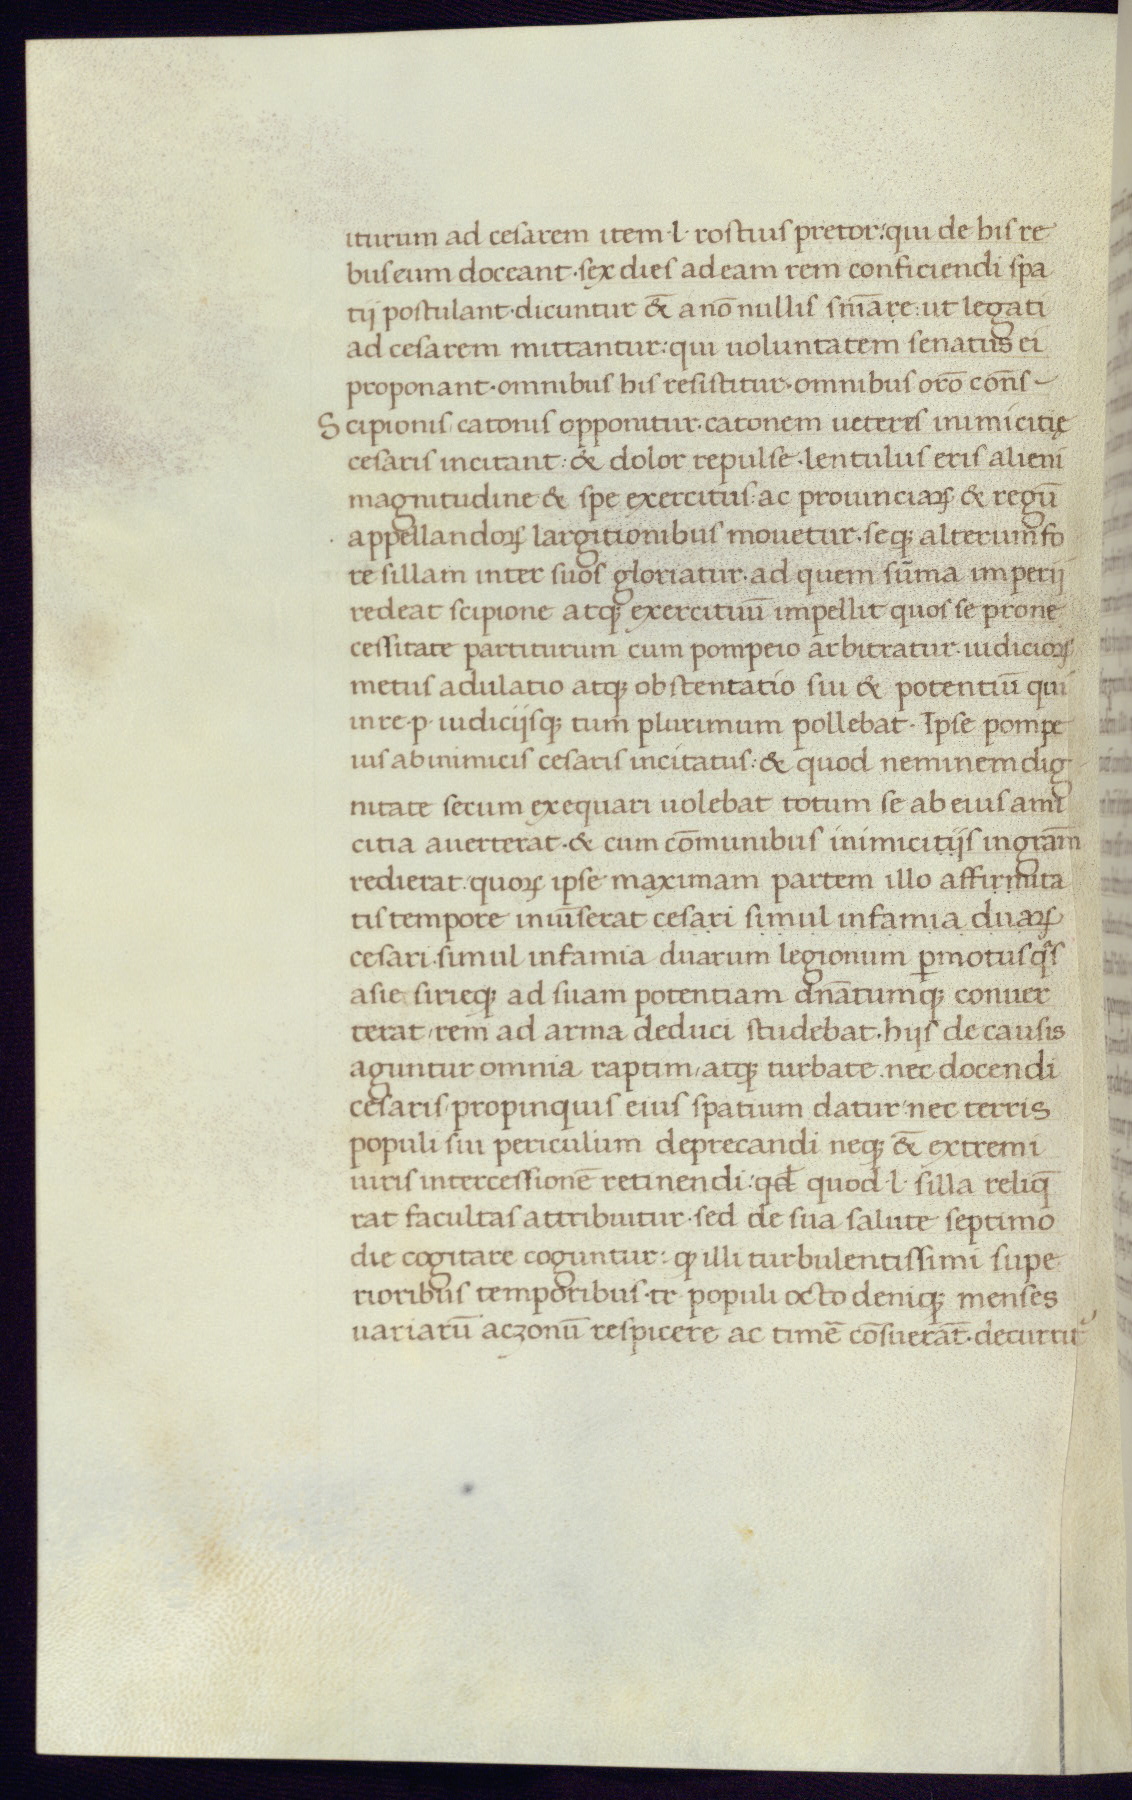 iturum ad cesarem item·l· rostius pretor: qui de his re
bus eum doceant·sex dies ad eam rem conficiendi spa
tij postulant·dicuntur &̄ a nōnullis sm̄are: ut legati
ad cesarem mittantur: qui uoluntatem senatus ei
proponant·omnibus his resistitur·omnibus orō coñs
Scipionis catonis opponitur·catonem ueteres inimicitię
cesaris incitant: & dolor repulse·lentulus eris alieni
magnitudine & spe exercitus: ac prouinciaꝝ & regū
appellandoꝝ largitionibus mouetur·seqꝫ alterum fo
re sillam inter suos gloriatur·ad quem sūma imperij
redeat scipione atqꝫ exercituū impellit quos se pro ne
cessitate partiturum cum pompeio arbitratur·iudicioꝝ
metus adulatio atqꝫ obstentatio sui & potentiū qui
in re·p· iudicijsqꝫ tum plurimum pollebat· Ipse pompe
ius ab inimicis cesaris incitatus: & quod neminem dig
nitate secum exequari uolebat totum se ab eius ami
citia auerterat·& cum cōmunibus inimicitijs in gram̄
redierat·quoꝝ ipse maximam partem illo affirmita
tis tempore iniūserat cesari simul infamia duaꝝ
cesari·simul infamia duarum legionum ꝑmotus qͣs
asie sirieqꝫ ad suam potentiam dn̄atumqꝫ conuer
terat, rem ad arma deduci studebat·hijs de causis
aguntur omnia raptim, atqꝫ turbate·nec docendi
cesaris, propinquis eius spatium datur, nec terris
populi sui periculum deprecandi neqꝫ &̄ extremi
iuris intercessionē retinendi: qd̄ quod·l· silla reliq̄
rat facultas attribuitur·sed de sua salute septimo
die cogitare coguntur: qꝫ illi turbulentissimi supe
rioribus temporibus·tr populi octo deniqꝫ menses
uariarū aczonū respicere ac timē cōsuerāt·decurrit᷑